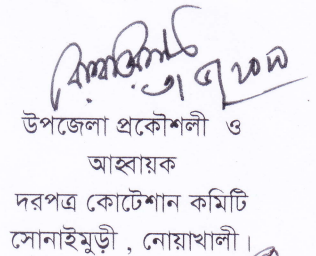 উপজেলা প্রকৌশলী ও
আহবায়ক
দরপত্র কোটেশান কমিটি
সোনাইমুড়ী , নোয়াখালী ।